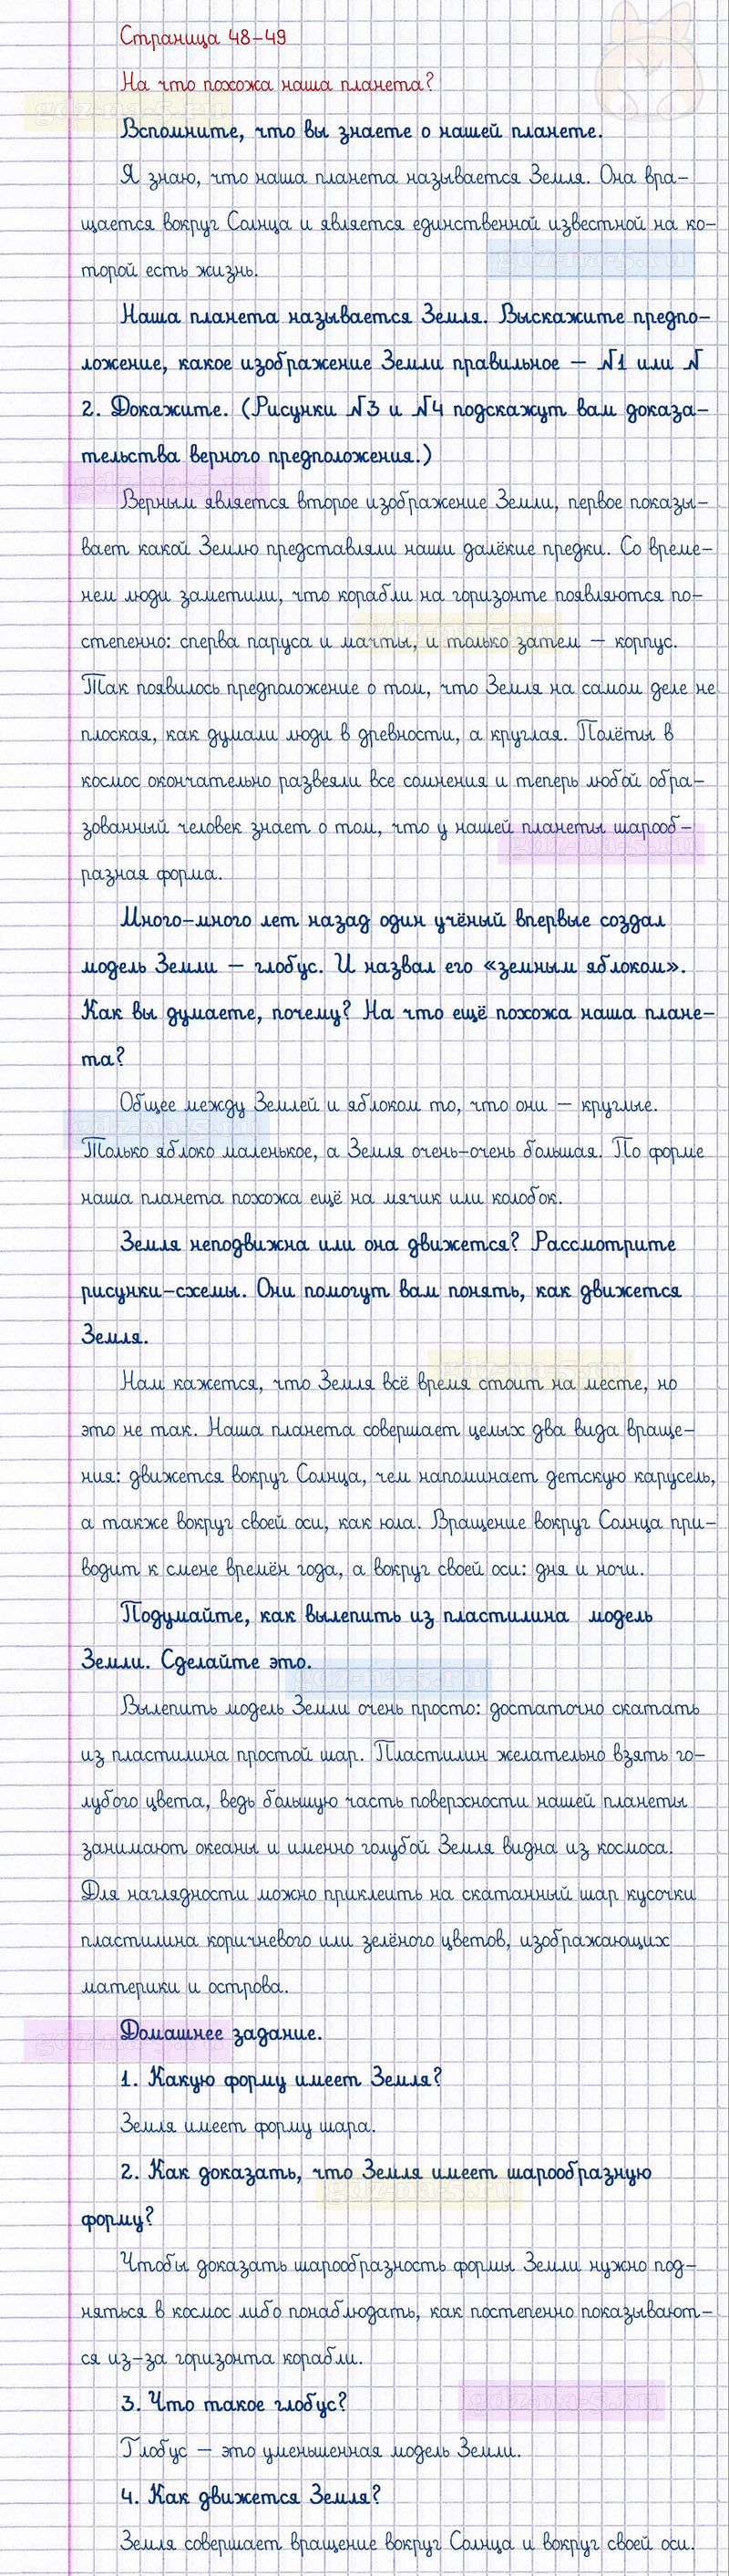 Страница 48-49
На что похожа наша планета?
Вспомните, что вы знаете о нашей планете.
Я знаю, что наша планета называется Земля. Она вра-
щается вокруг Солнца и является единственной известной на ко-
торой есть жизнь.
Наша планета называется Земля. Выскажите предпо-
ложение, какое изображение Земли правильное – №1 или №
2. Докажите. (Рисунки №3 и №4 подскажут вам доказа-
тельства верного предположения.)
Верным является второе изображение Земли, первое показы-
вает какой Землю представляли наши далёкие предки. Со време-
нем люди заметили, что корабли на горизонте появляются по-
степенно: сперва паруса и мачты, и только затем – корпус.
Так появилось предположение о том, что Земля на самом деле не
плоская, как думали люди в древности, а круглая. Полёты в
космос окончательно развеяли все сомнения и теперь любой обра-
зованный человек знает о том, что у нашей планеты шарооб-
разная форма.
Много-много лет назад один учёный впервые создал
модель Земли – глобус. И назвал его «земным яблоком».
Как вы думаете, почему? На что ещё похожа наша плане-
та?
Общее между Землей и яблоком то, что они – круглые.
Только яблоко маленькое, а Земля очень-очень большая. По форме
наша планета похожа ещё на мячик или колобок.
Земля неподвижна или она движется? Рассмотрите
рисунки-схемы. Они помогут вам понять, как движется
Земля.
Нам кажется, что Земля всё время стоит на месте, но
это не так. Наша планета совершает целых два вида враще-
ния: движется вокруг Солнца, чем напоминает детскую карусель,
а также вокруг своей оси, как юла. Вращение вокруг Солнца при-
водит к смене времён года, а вокруг своей оси: дня и ночи.
Подумайте, как вылепить из пластилина модель
Земли. Сделайте это.
Вылепить модель Земли очень просто: достаточно скатать
из пластилина простой шар. Пластилин желательно взять го-
лубого цвета, ведь большую часть поверхности нашей планеты
занимают океаны и именно голубой Земля видна из космоса.
Для наглядности можно приклеить на скатанный шар кусочки
пластилина коричневого или зелёного цветов, изображающих
материки и острова.
Домашнее задание.
1. Какую форму имеет Земля?
Земля имеет форму шара.
2. Как доказать, что Земля имеет шарообразную
форму?
Чтобы доказать шарообразность формы Земли нужно под-
няться в космос либо понаблюдать, как постепенно показывают-
ся из-за горизонта корабли.
3. Что такое глобус?
Глобус – это уменьшенная модель Земли.
4. Как движется Земля?
Земля совершает вращение вокруг Солнца и вокруг своей оси.